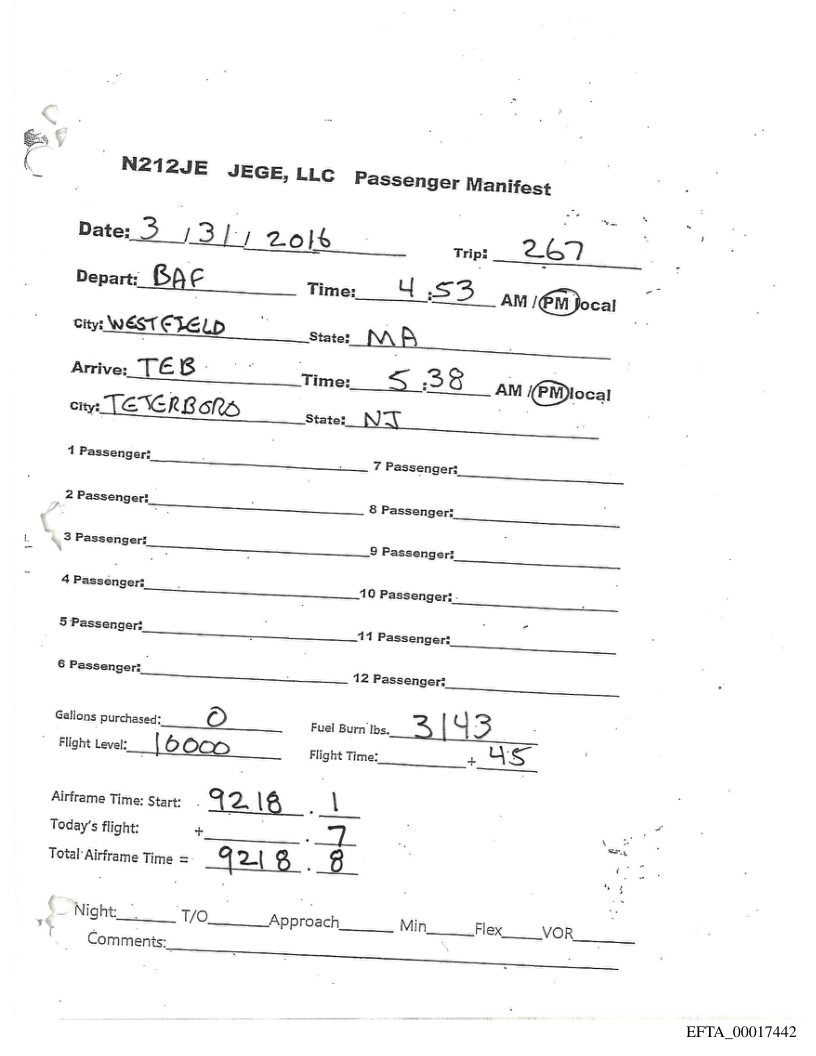 N212JE JEGE, LLC Passenger Manifest
Date: 3 / 31 / 2016 Trip: 267
Depart: BAF Time: 4:53 AM / PM local
City: WESTFIELD State: MA
Arrive: TEB Time: 5:38 AM / PM local
City: TETERBORO State: NJ
1 Passenger: 7 Passenger:
2 Passenger: 8 Passenger:
3 Passenger: 9 Passenger:
4 Passenger: 10 Passenger:
5 Passenger: 11 Passenger:
6 Passenger: 12 Passenger:
Gallons purchased: 0 Fuel Burn lbs. 3143
Flight Level: 16000 Flight Time: + 45
Airframe Time: Start: 9218 . 1
Today's flight: + . 7
Total Airframe Time = 9218 . 8
Night: T/O Approach Min Flex VOR
Comments:
EFTA_00017442